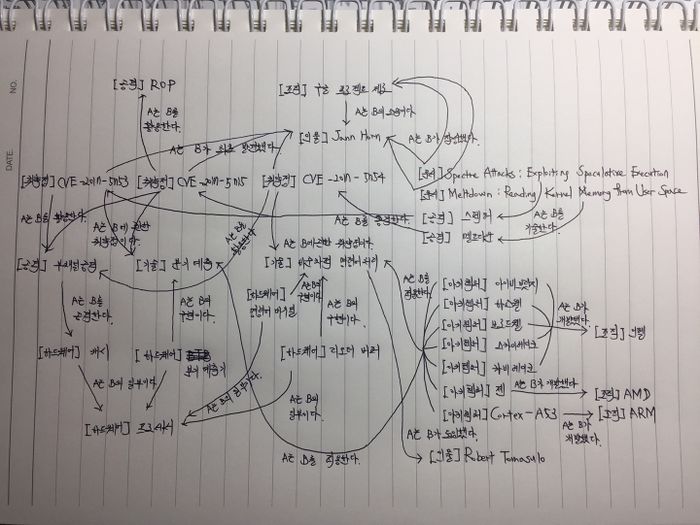 NO.
DATE.
[공격] ROP
[조직] 구글 프로젝트 제로
A는 B를 활용한다.
A는 B의 소속이다
A는 B가 최초 발견했다.
[인물] Jann Horn
A는 B가 발견했다.
[취약점] CVE-2017-5753
[취약점] CVE-2017-5715
[취약점] CVE-2017-5754
[논문] Spectre Attacks: Exploiting Speculative Execution
[논문] Meltdown: Reading Kernel Memory from User Space
A는 B를 활용한다.
A는 B에 관한 취약점이다.
A는 B를 활용한다.
A는 B에 관한 취약점이다.
[공격] 스펙터
[공격] 멜트다운
A는 B를 기술한다.
[공격] 부채널 공격
[기술] 분기 예측
[기술] 비순차적 명령어 처리
A는 B를 적용한다.
A는 B를 공격한다.
A는 B의 구현이다.
[하드웨어] 명령어 파이프
A는 B의 구현이다.
[아키텍처] 아이비브릿지
[아키텍처] 하스웰
[아키텍처] 브로드웰
[아키텍처] 스카이레이크
[아키텍처] 카비레이크
A는 B가 개발했다.
[조직] 인텔
[하드웨어] 캐시
[하드웨어] 분기 예측기
[하드웨어] 리오더 버퍼
A는 B의 일부이다.
A는 B의 일부이다.
A는 B의 일부이다.
[아키텍처] 젠
A는 B가 개발했다.
[조직] AMD
[하드웨어] 프로세서
[아키텍처] Cortex-A53
[조직] ARM
A는 B가 개발했다.
A는 B가
A는 B를 적용한다.
[인물] Robert Tomasulo